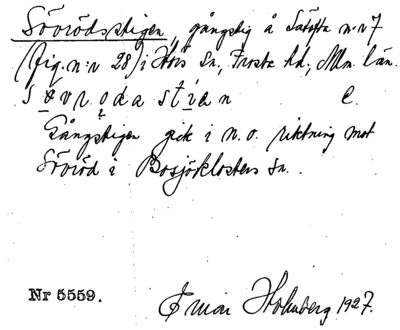 Sövrödsstigen, gångstig å Sätofta n:r 7
(fig. n:r 28) i Hörs Sn, Frosta hd, Mlm. län.
e.
Gångstigen gick i n.o. riktning mot
Sövröd i Bosjöklosters Sn.
Nr 5559.
Holmberg 1927.